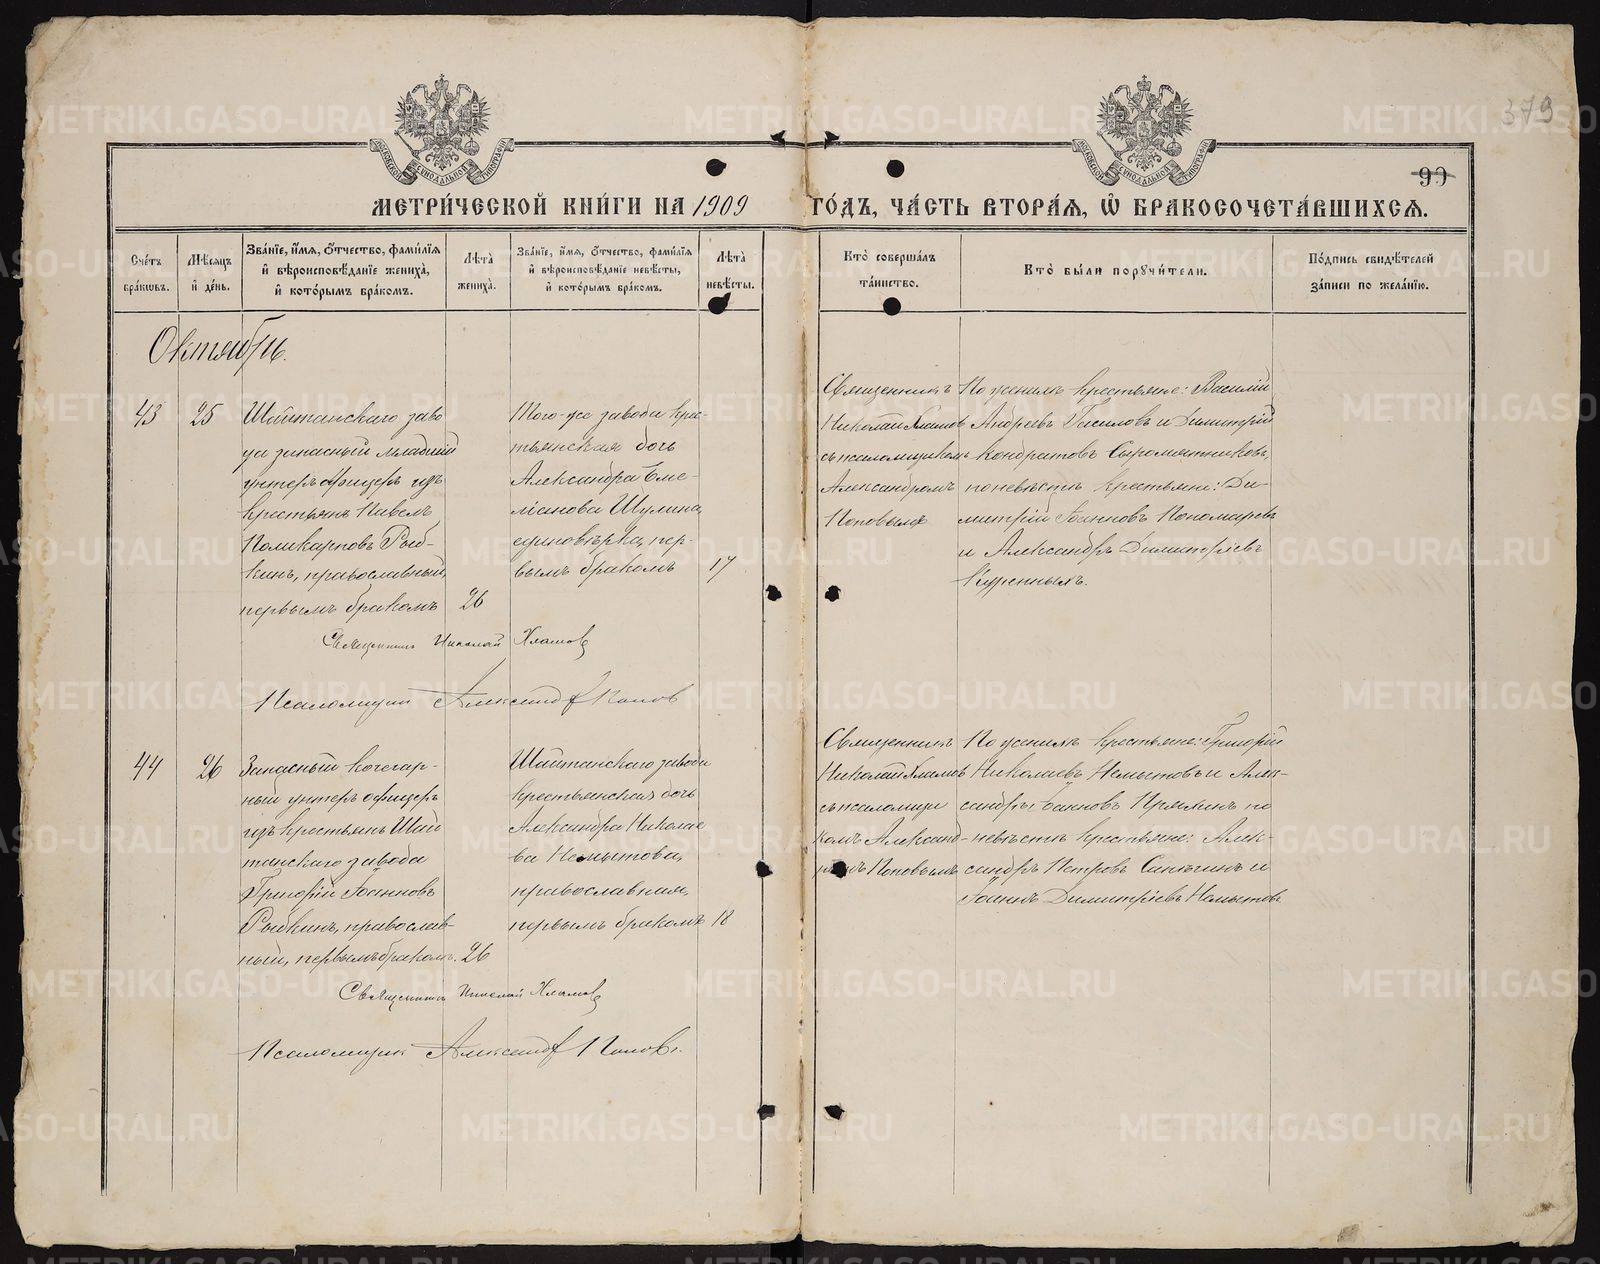 379
99
МЕТРИ́ЧЕСКОЙ КНИ́ГИ НА 1909 ГО́ДЪ, ЧА́СТЬ ВТОРА́Я, Ѡ҆ БРАКОСОЧЕТА́ВШИХСЯ.
Сче́тъ бра́кѡвъ.
Мѣ́сяцъ и҆ де́нь.
Зва́нїе, и҆́мя, ѻ҆́тчество, фами́лїя и҆ вѣроисповѣ́данїе жениха̀, и҆ кото́рымъ бра́комъ.
Лѣ́та жениха̀.
Зва́нїе, и҆́мя, ѻ҆́тчество, фами́лїя и҆ вѣроисповѣ́данїе невѣ́сты, и҆ кото́рымъ бра́комъ.
Лѣ́та невѣ́сты.
Кто̀ соверша́лъ та́инство.
Кто̀ бы́ли порꙋчи́тели.
По́дпись свидѣ́телей за́писи по жела́нїю.
Октябрь.
43
25
Шайтанскаго заво
да запасный младший
унтеръ офицеръ изъ
крестьянъ Павелъ
Поликарповъ Рыб-
кинъ, православный,
первымъ бракомъ
26
Того-же завода крес-
тьянская дочь
Александра Еме-
лианова Шулина,
единовѣрка, пер-
вымъ бракомъ
17
Священникъ
Николай Хламов
съ псаломщикомъ
Александромъ
Поповымъ
По женихѣ крестьяне: Василий
Андреевъ Гасиловъ и Димитрий
Кондратовъ Сыромятниковъ,
по невѣстѣ крестьяне: Ди-
митрий Иоанновъ Пономаревъ
и Александръ Димитриевъ
Куренныхъ.
Священникъ Николай Хламовъ
Псаломщикъ Александръ Поповъ
44
26
Запасный кочегар-
ный унтеръ офицеръ
изъ крестьянъ Шай
танскаго завода
Григорий Иоанновъ
Рыбкинъ, православ-
ный, первымъ бракомъ.
26
Шайтанскаго завода
крестьянская дочь
Александра Николае
ва Немытова,
православная,
первымъ бракомъ
18
Священникъ
Николай Хламов
съ псаломщи
комъ Александ-
ромъ Поповымъ
По женихѣ крестьяне: Григорий
Николаевъ Немытовъ и Алек-
сандръ Иоанновъ по
невѣстѣ крестьяне: Алек-
сандръ Петровъ и
Иоаннъ Димитриевъ Немытовъ
Священникъ Николай Хламовъ
Псаломщикъ Александръ Поповъ.
METRIKI.GASO-URAL.RU